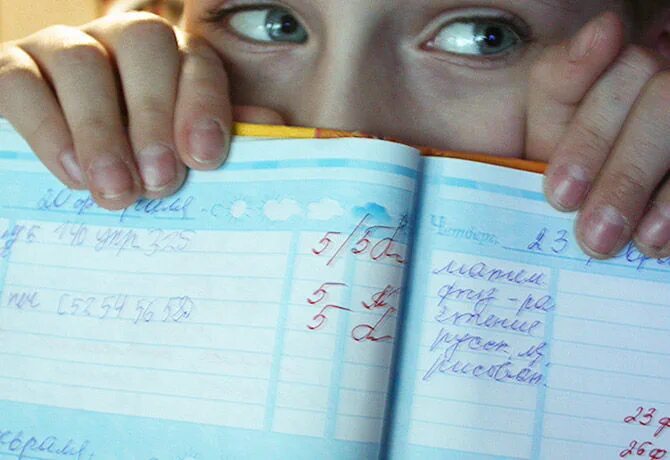 20 февраля
140 упр 325 5/5
5
C 52 54 56 58 5
февраля
Четверг 23
матем
физ-ра
чтение
русск. яз
рисован.
23 ф
26 ф